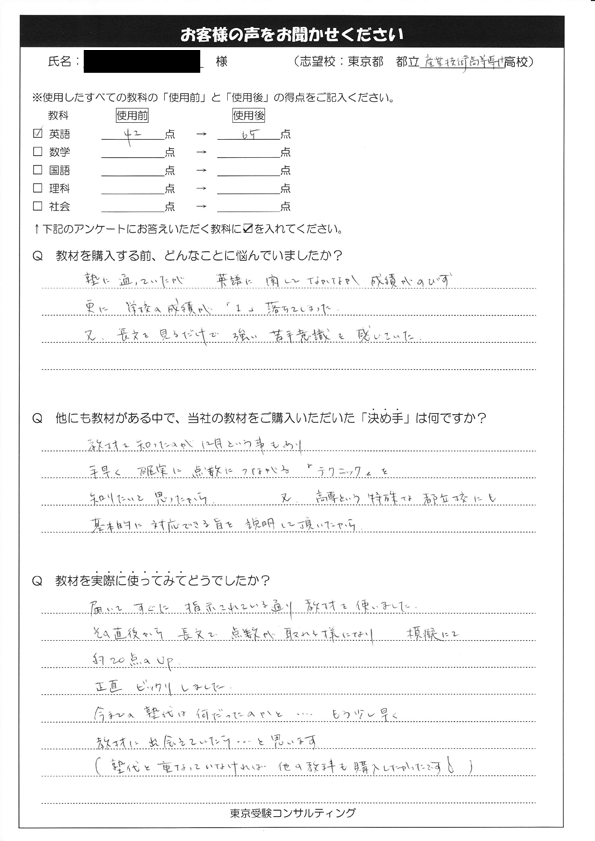 お客様の声をお聞かせください
氏名： 様 （志望校：東京都 都立 産業技術高等専門高校）
※使用したすべての教科の「使用前」と「使用後」の得点をご記入ください。
教科 使用前 使用後
☑ 英語 42 点 → 65 点
□ 数学 点 → 点
□ 国語 点 → 点
□ 理科 点 → 点
□ 社会 点 → 点
↑下記のアンケートにお答えいただく教科に☑を入れてください。
Q 教材を購入する前、どんなことに悩んでいましたか？
塾に通っていたが 英語に関してなかなか成績がのびず
更に 学校の成績が「1」落ちてしまった.
又、長文を見るだけで 強い 苦手意識を感じていた.
Q 他にも教材がある中で、当社の教材をご購入いただいた「決め手」は何ですか？
教材を知ったのが 12月という事もあり
手早く 確実に 点数に つながる 『テクニック』を
知りたいと思ったから. 又、高専という 特殊な 都立校にも
基本的に 対応できる旨を 説明して頂いたから
Q 教材を実際に使ってみてどうでしたか？
届いて すぐに 指示されている通り 教材を使いました.
その直後から 長文で 点数が 取れる様になり 模擬にて
約20点のup.
正直 ビックリしました.
今までの 塾代は 何だったのかと…. もう少し早く
教材に 出会えていたら…と思います
（塾代と重なっていなければ 他の教科も購入したかったです！）
東京受験コンサルティング